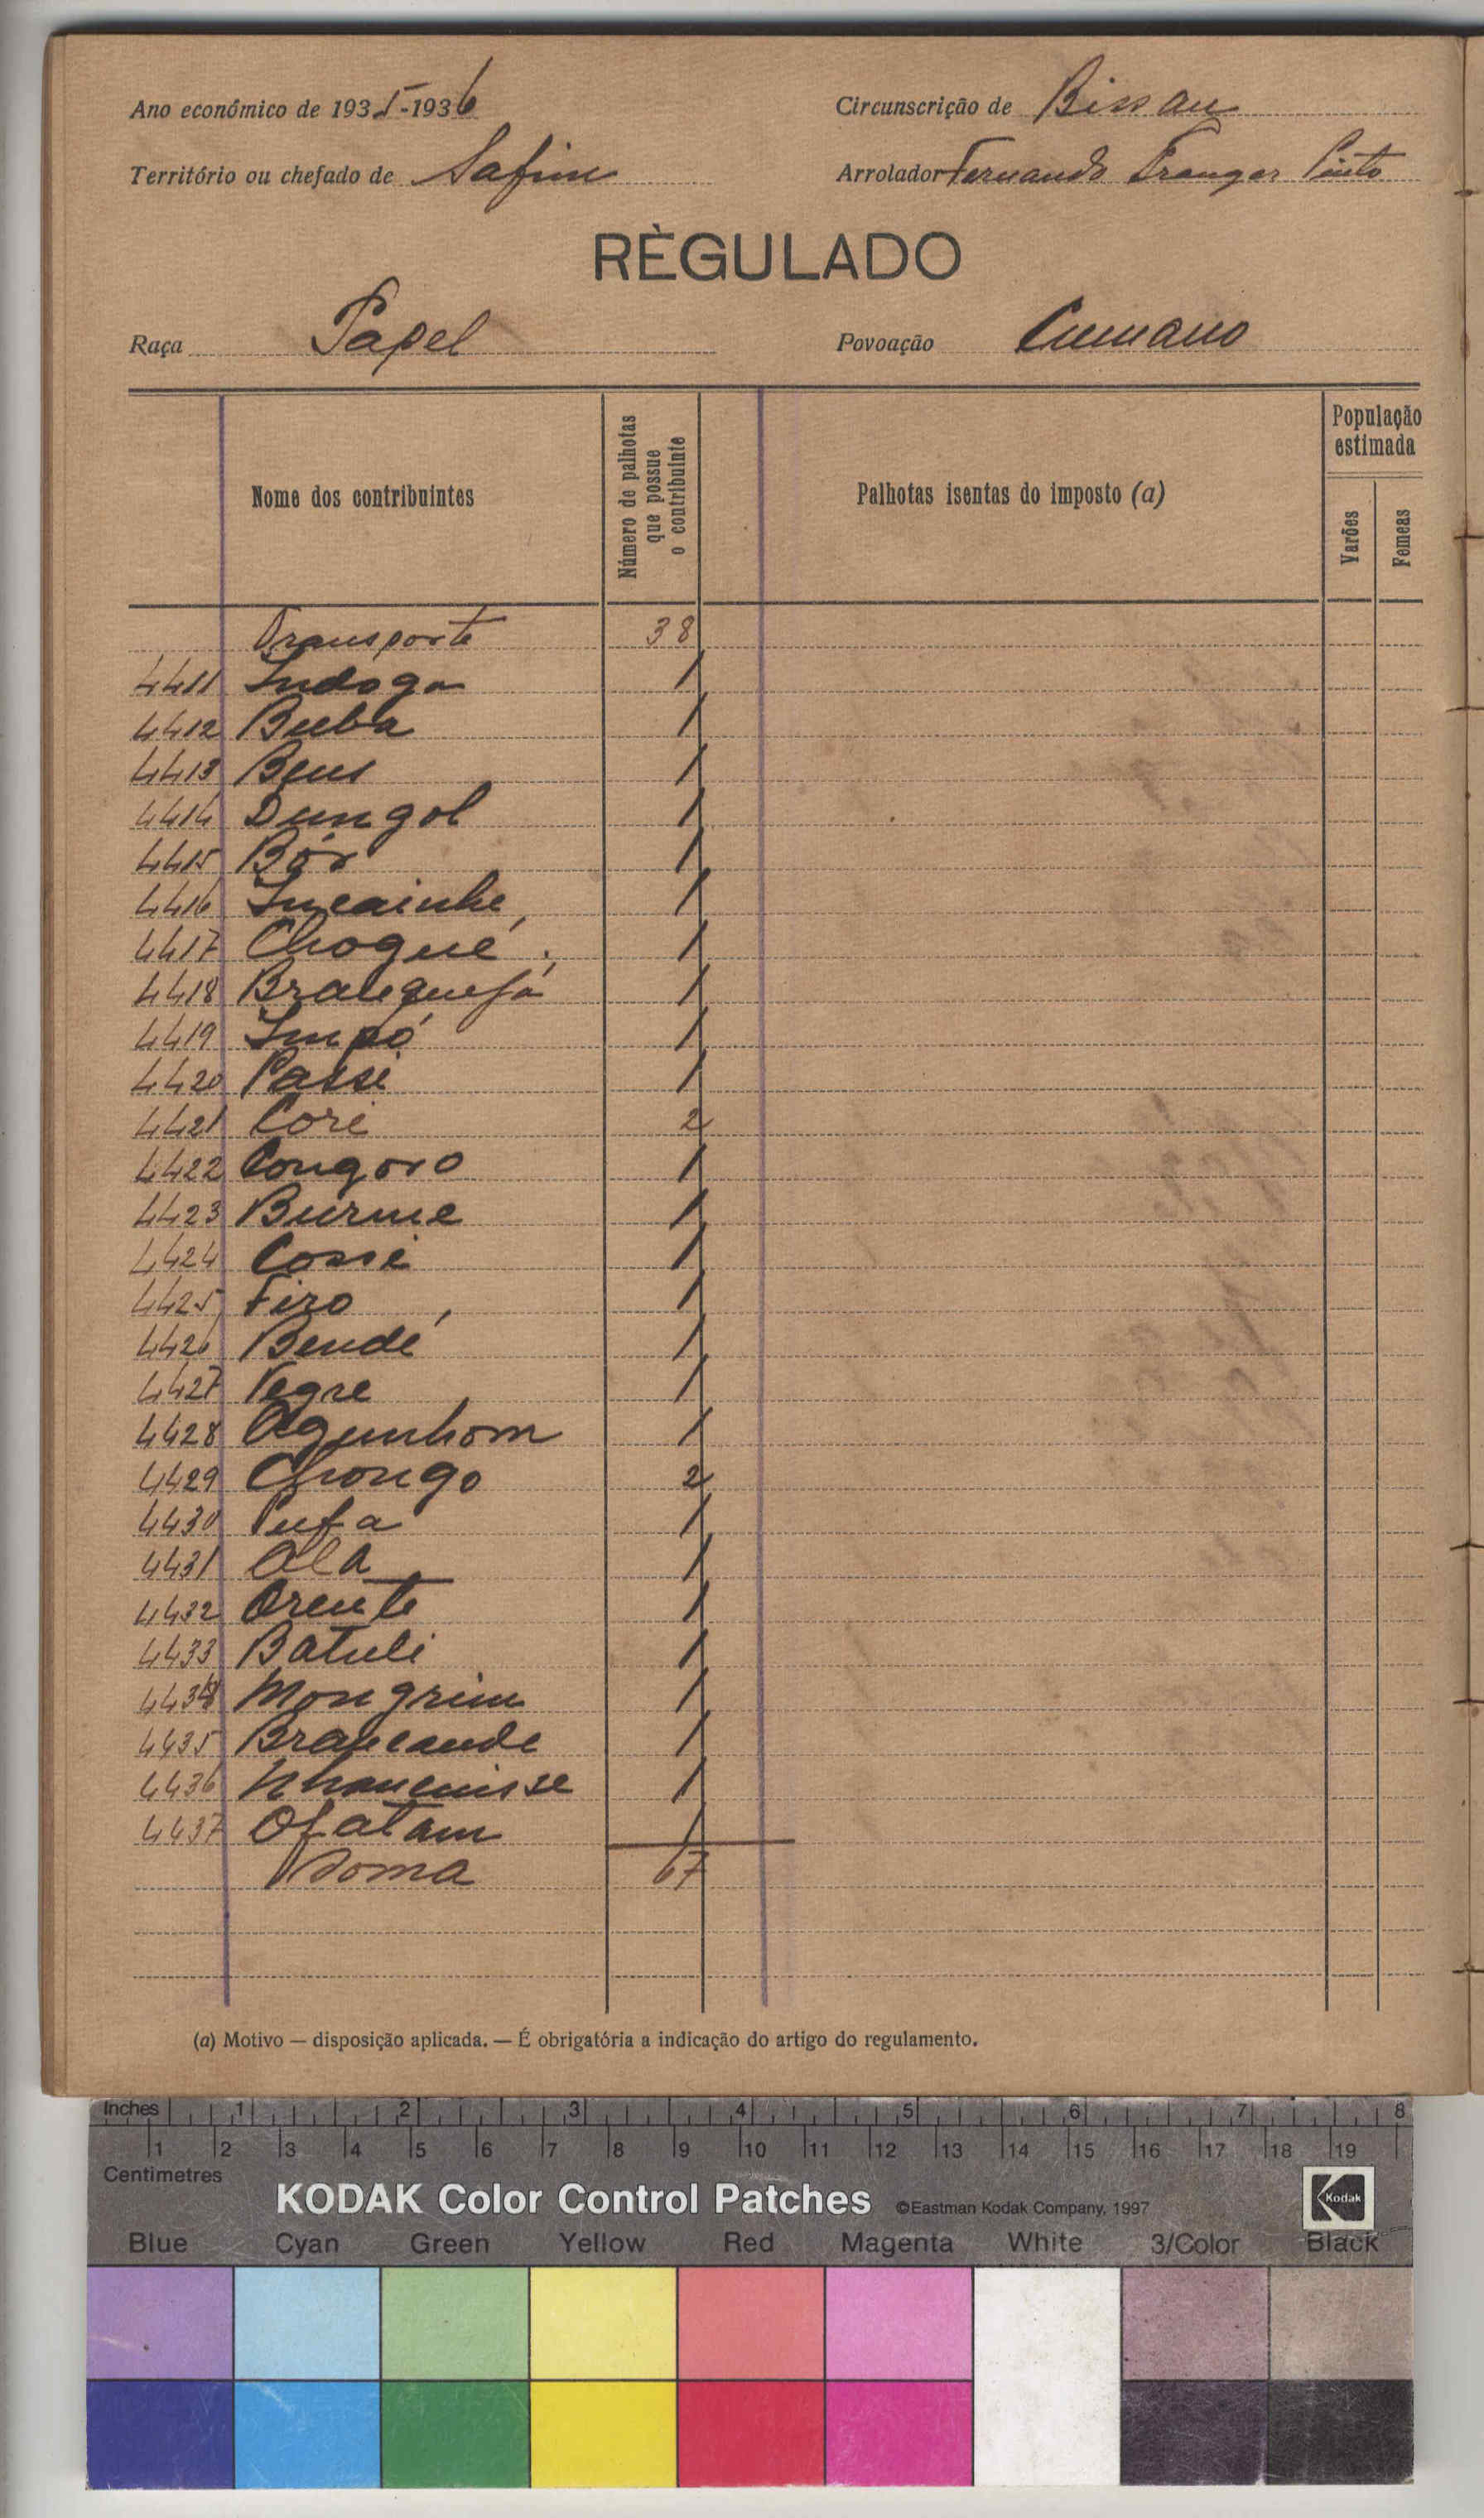 Ano económico de 1935-1936
Circunscrição de Bissau
Território ou chefado de Safim
Arrolador Fernando Franger Pinto
RÈGULADO
Raça Papel
Povoação Cumano
Nome dos contribuintes
Número de palhotas que possue o contribuinte
Palhotas isentas do imposto (a)
População estimada
Varões
Femeas
Transporte 38
4411 Indoga 1
4412 Buba 1
4413 Beus 1
4414 Dungol 1
4415 Bór 1
4416 Incainhe 1
4417 Choqué 1
4418 Branquefá 1
4419 Impó 1
4420 Passi 1
4421 Cori 2
4422 Congoro 1
4423 Burme 1
4424 Cossi 1
4425 Firo 1
4426 Bendé 1
4427 Negre 1
4428 Agunhom 1
4429 Chongo 2
4430 Pufa 1
4431 Ala 1
4432 Orente 1
4433 Batuli 1
4434 Mongrim 1
4435 Brancande 1
4436 1
4437 Ofatam 1
Soma 67
(a) Motivo — disposição aplicada. — É obrigatória a indicação do artigo do regulamento.
Inches 1 2 3 4 5 6 7 8
1 2 3 4 5 6 7 8 9 10 11 12 13 14 15 16 17 18 19
Centimetres
KODAK Color Control Patches ©Eastman Kodak Company, 1997
Kodak
Blue Cyan Green Yellow Red Magenta White 3/Color Black